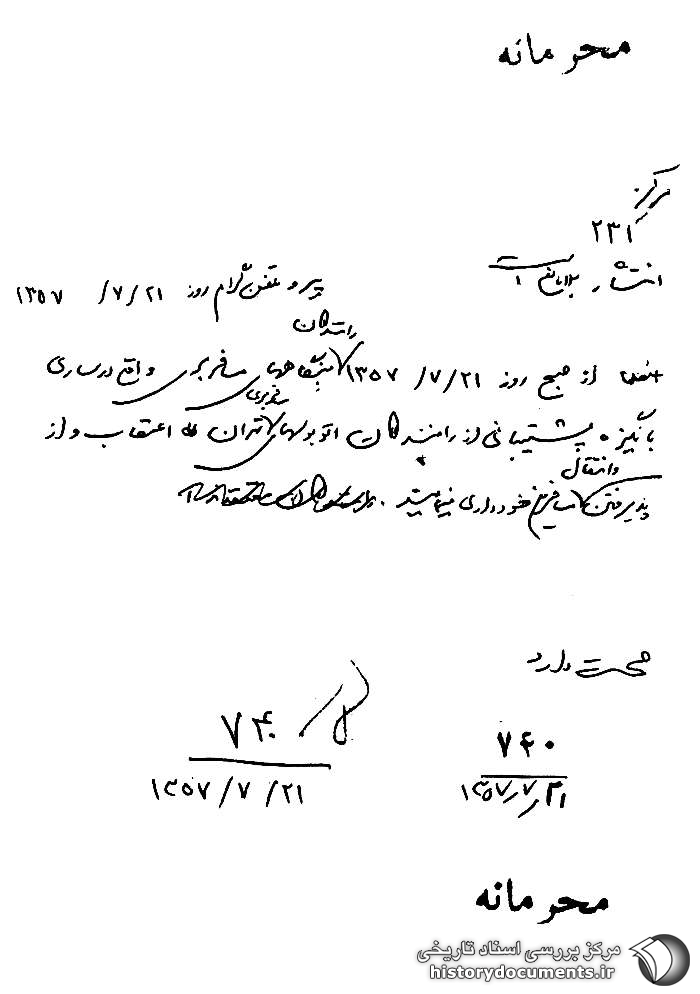 محرمانه
مرکز
۲۳۱
انتشار بلامانع است
پیرو تلفن گرام روز ۱۳۵۷/۷/۲۱
رانندگان
از صبح روز ۱۳۵۷/۷/۲۱ بنگاههای مسافربری واقع در ساری
مسافربری
با انگیزه پشتیبانی از رانندگان اتوبوسهای تهران اعتصاب و از
وانتقال
پذیرفتن مسافرین خودداری مینمایند.
صحت دارد
۷۴۰
۱۳۵۷/۷/۲۱
۷۴۰
۱۳۵۷/۷/۲۱
محرمانه
مرکز بررسی اسناد تاریخی
historydocuments.ir